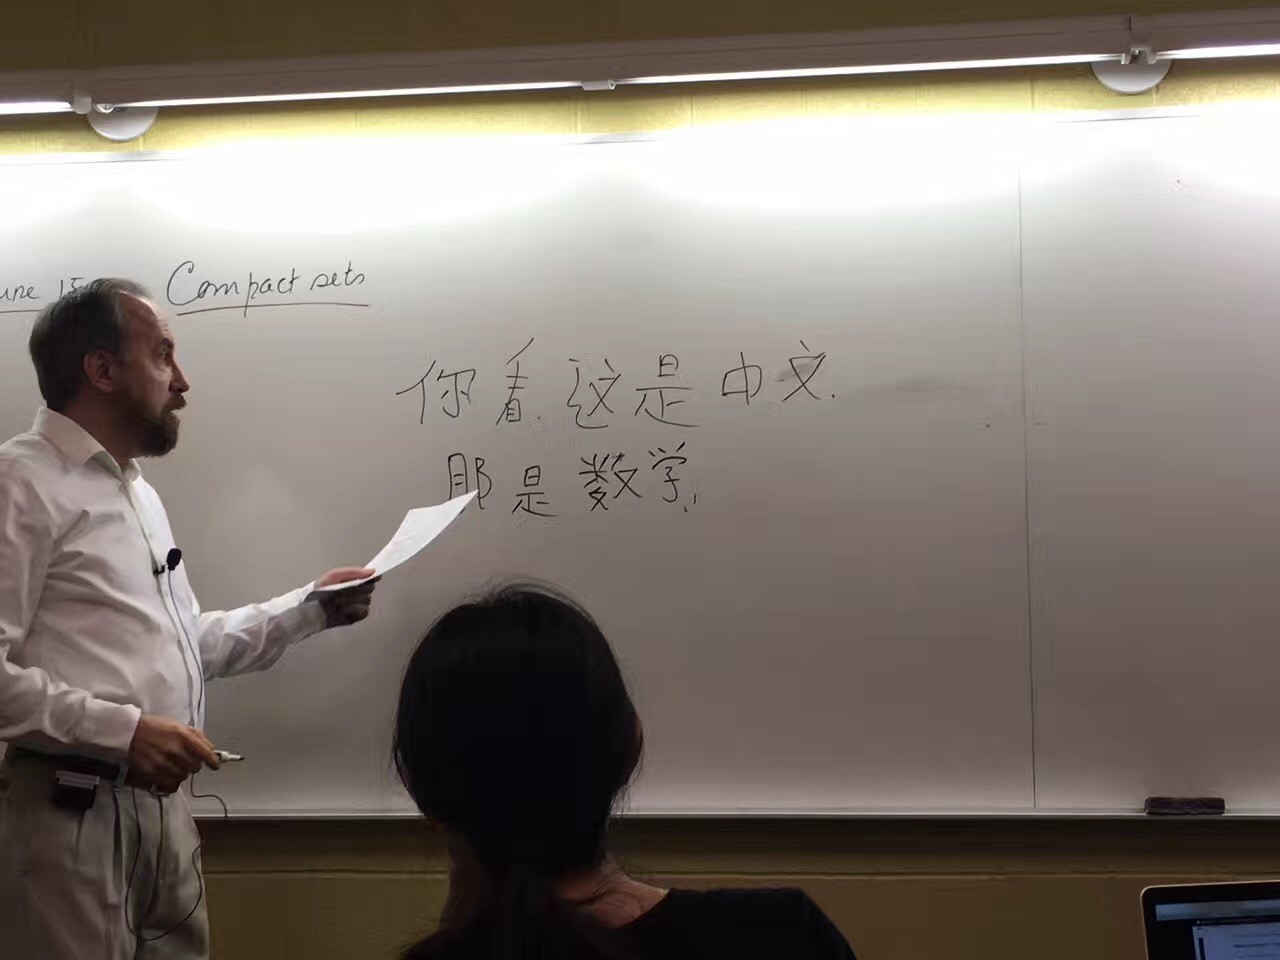 Compact sets
你看.这是中文.
那是数学.